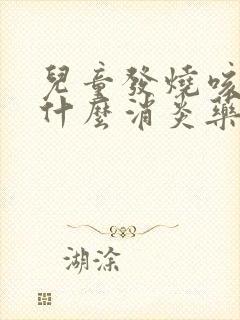 兒童發燒咳
什麼消炎藥
湖涂